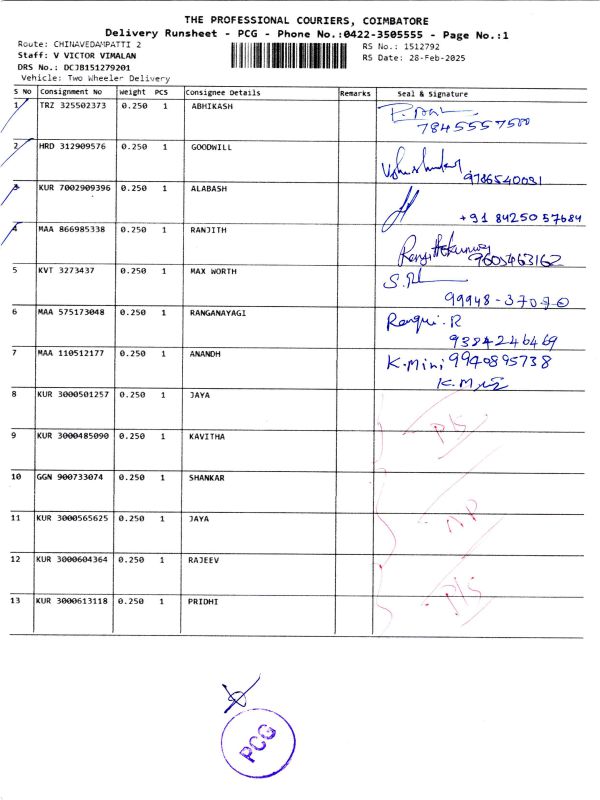 THE PROFESSIONAL COURIERS, COIMBATORE
Delivery Runsheet - PCG - Phone No.:0422-3505555 - Page No.:1
Route: CHINAVEDAMPATTI 2
RS No.: 1512792
Staff: V VICTOR VIMALAN
RS Date: 28-Feb-2025
DRS No.: DCJB151279201
Vehicle: Two Wheeler Delivery
S No Consignment No Weight PCS Consignee Details Remarks Seal & Signature
1 TRZ 325502373 0.250 1 ABHIKASH
7845557500
2 HRD 312909576 0.250 1 GOODWILL
9786540031
3 KUR 7002909396 0.250 1 ALABASH
+91 84250 57684
4 MAA 866985338 0.250 1 RANJITH
9605463162
5 KVT 3273437 0.250 1 MAX WORTH
99948-37070
6 MAA 575173048 0.250 1 RANGANAYAGI
R
9384246469
7 MAA 110512177 0.250 1 ANANDH K.Mini 9940895738
8 KUR 3000501257 0.250 1 JAYA
9 KUR 3000485090 0.250 1 KAVITHA
10 GGN 900733074 0.250 1 SHANKAR
11 KUR 3000565625 0.250 1 JAYA
12 KUR 3000604364 0.250 1 RAJEEV
13 KUR 3000613118 0.250 1 PRIDHI
PCG